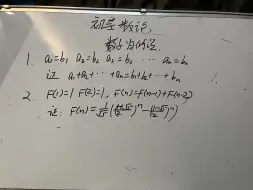 初等数论,
数学归纳法.
1. a₁=b₁ a₂=b₂ a₃=b₃ ⋯ aₙ=bₙ
证 a₁+a₂+⋯+aₙ=b₁+b₂+⋯+bₙ
2. F(1)=1 F(2)=1, F(n)=F(n-1)+F(n-2)
证: F(n)=